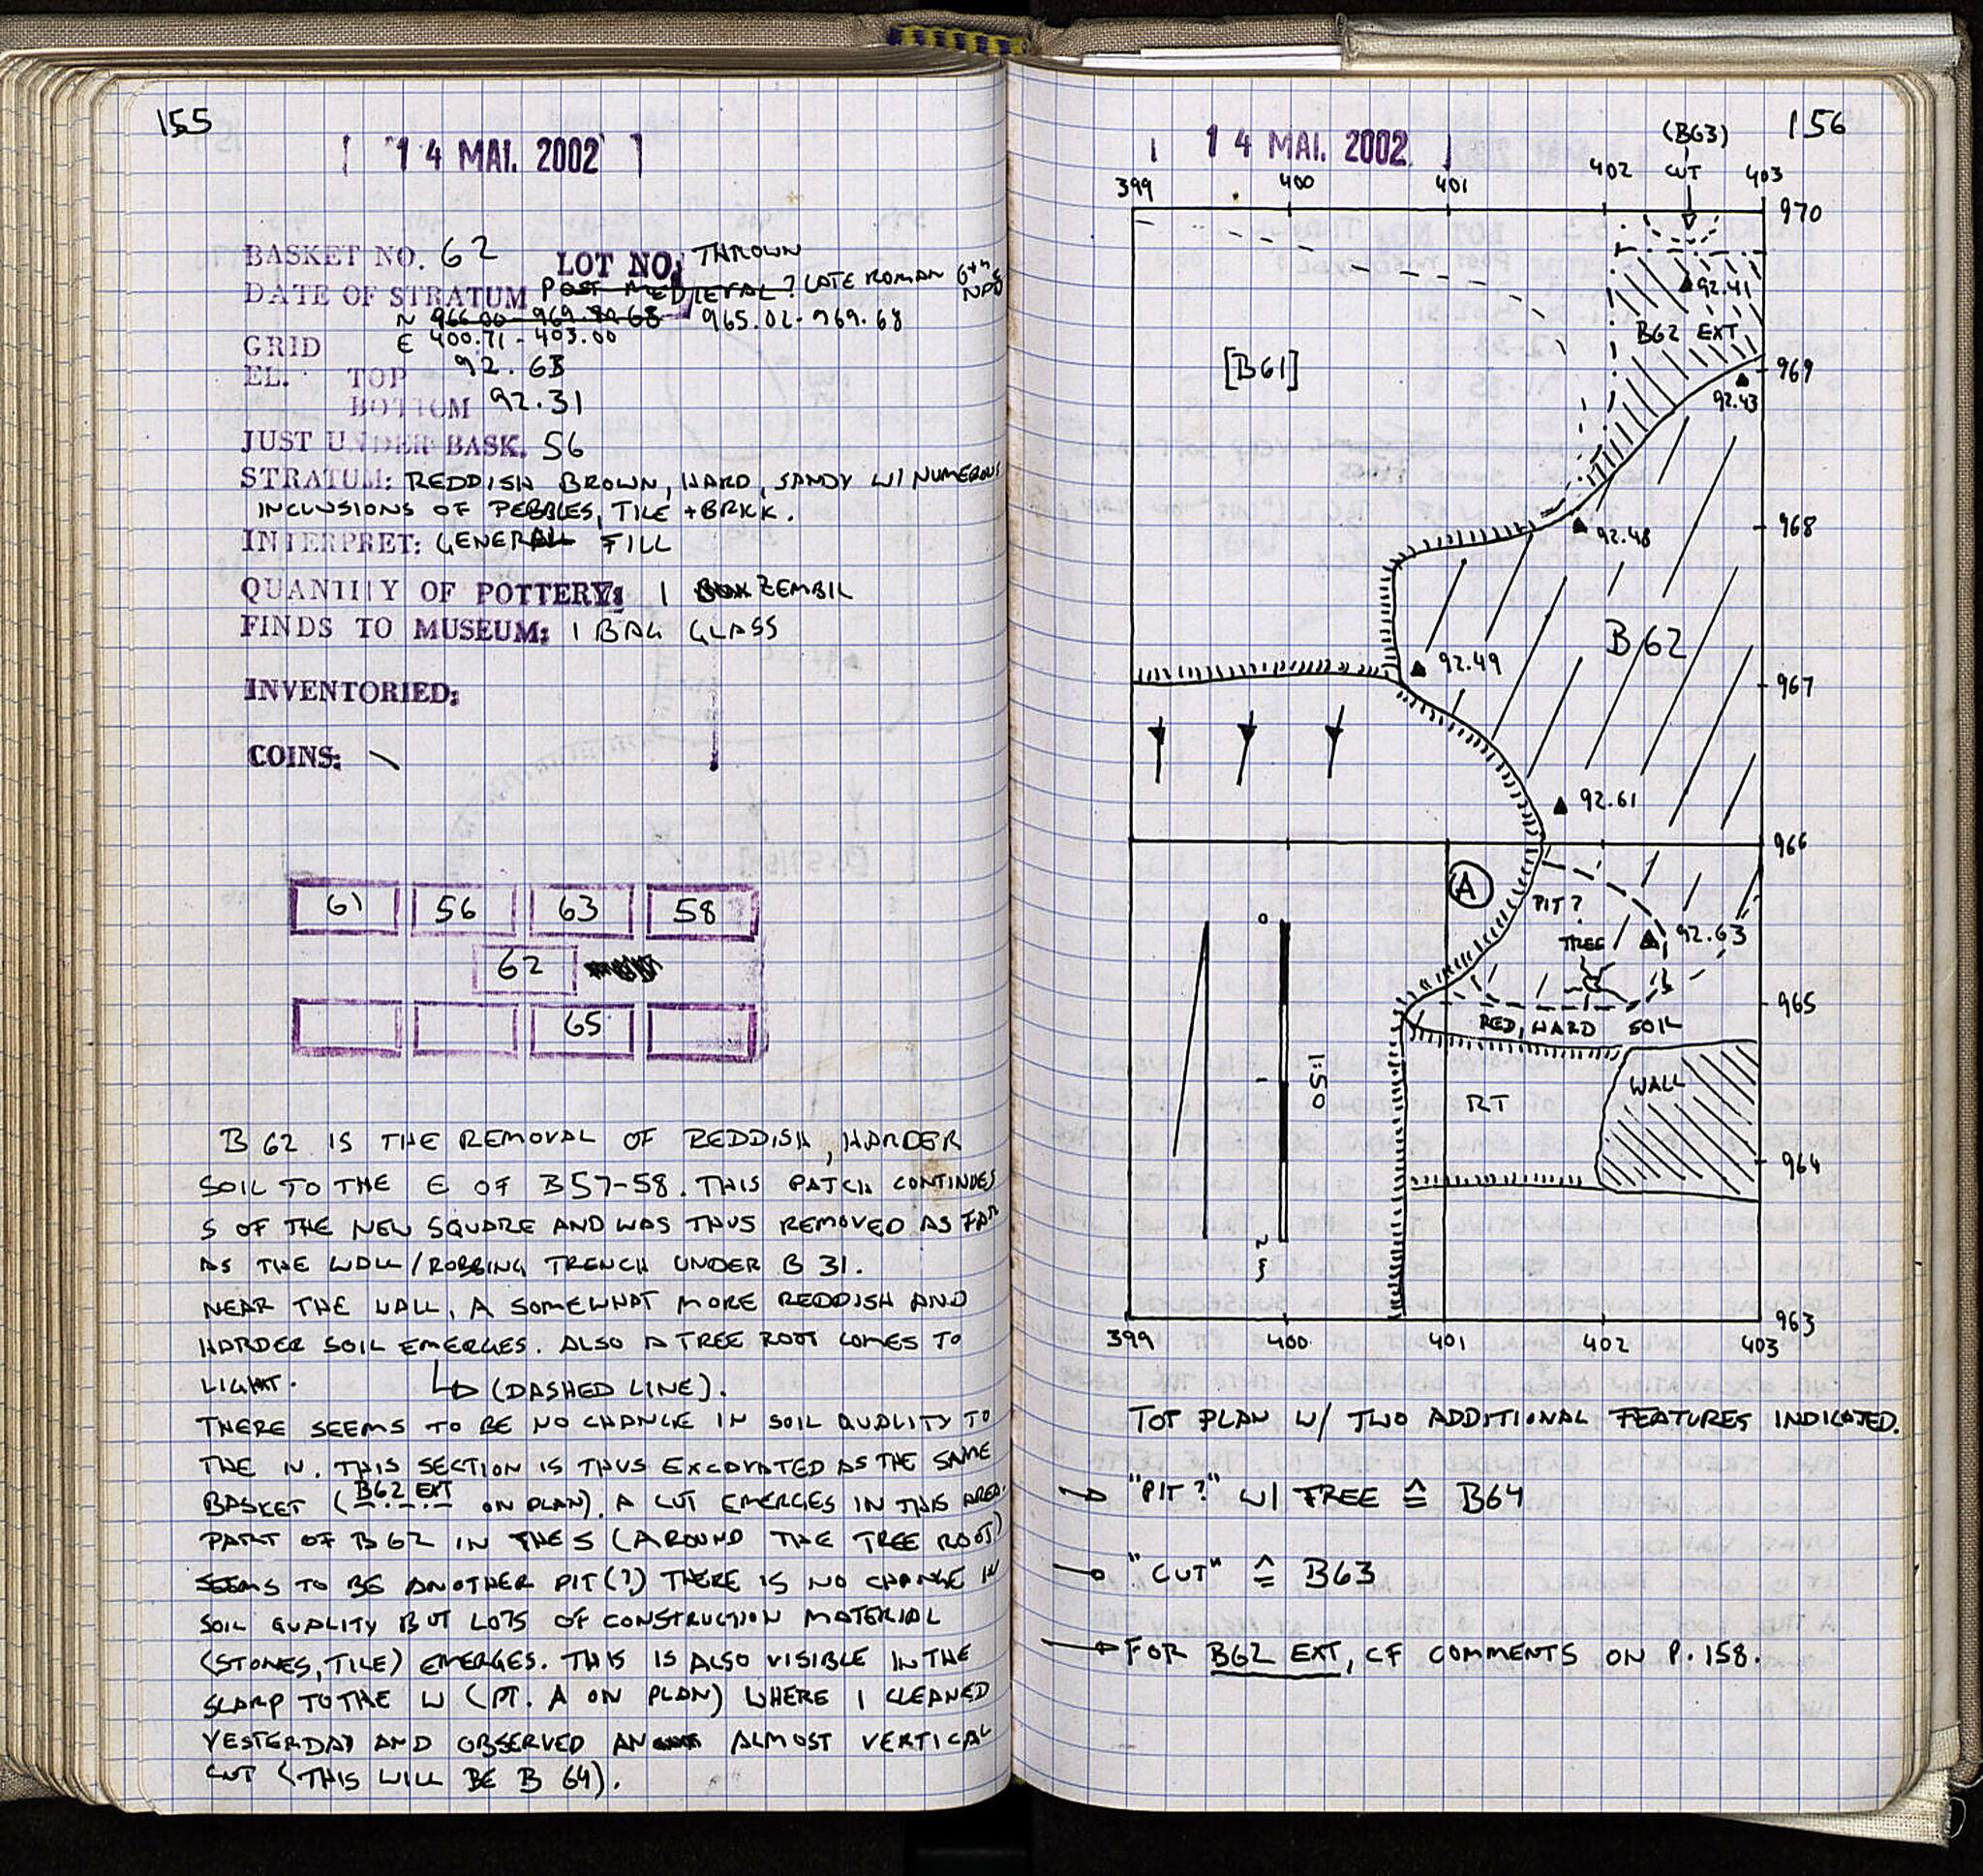 155
14 MAI. 2002
BASKET NO. 62 LOT NO: THROWN
DATE OF STRATUM POST MEDIEVAL? LATE ROMAN 6TH
N 966.00 - 965.02-969.68
GRID E 400.71 - 403.00
EL. TOP 92.63
BOTTOM 92.31
JUST UNDER BASK. 56
STRATUM: REDDISH BROWN, HARD, SANDY W/ NUMEROUS
INCLUSIONS OF PEBBLES, TILE + BRICK.
INTERPRET: GENERAL FILL
QUANTITY OF POTTERY: 1 ZEMBIL
FINDS TO MUSEUM: 1 BAG GLASS
INVENTORIED:
COINS: \
61 56 63 58
62
65
B 62 IS THE REMOVAL OF REDDISH, HARDER
SOIL TO THE E OF B57-58. THIS PATCH CONTINUES
S OF THE NEW SQUARE AND WAS THUS REMOVED AS FAR
AS THE WALL/ROBBING TRENCH UNDER B 31.
NEAR THE WALL, A SOMEWHAT MORE REDDISH AND
HARDER SOIL EMERGES. ALSO A TREE ROOT COMES TO
LIGHT. ↳ (DASHED LINE).
THERE SEEMS TO BE NO CHANGE IN SOIL QUALITY TO
THE N. THIS SECTION IS THUS EXCAVATED AS THE SAME
BASKET (B62 EXT ON PLAN). A CUT EMERGES IN THIS AREA.
PART OF B 62 IN THE S (AROUND THE TREE ROOT)
SEEMS TO BE ANOTHER PIT(?) THERE IS NO CHANGE IN
SOIL QUALITY BUT LOTS OF CONSTRUCTION MATERIAL
(STONES, TILE) EMERGES. THIS IS ALSO VISIBLE IN THE
SCARP TO THE W (PT. A ON PLAN) WHERE I CLEANED
YESTERDAY AND OBSERVED AN ALMOST VERTICAL
CUT (THIS WILL BE B 64).
156
14 MAI. 2002
(B63)
CUT
399 400 401 402 403
970
92.41
B62 EXT
[B61]
969
92.43
968
92.48
B 62
92.49
967
92.61
966
A
PIT?
TREE
92.63
0
965
RED, HARD SOIL
1:50
1
WALL
RT
964
2
963
399 400 401 402 403
TOP PLAN W/ TWO ADDITIONAL FEATURES INDICATED.
→ "PIT?" W/ TREE ≙ B64
→ "CUT" ≙ B63
→ FOR B62 EXT, CF COMMENTS ON P. 158.